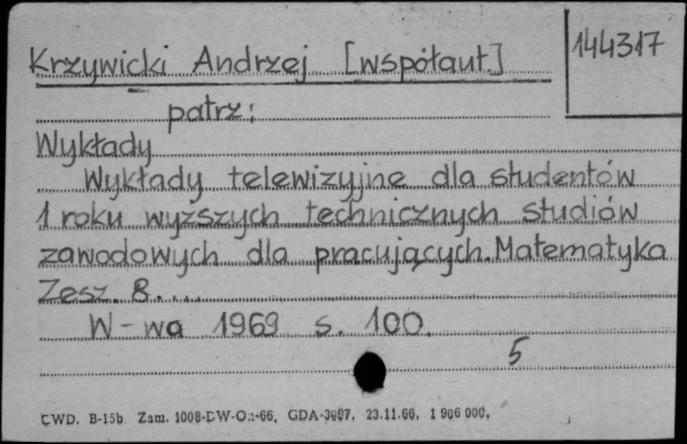 Krzywicki Andrzej [współaut.]
144317
patrz:
Wykłady
Wykłady telewizyjne dla studentów
1 roku wyższych technicznych studiów
zawodowych dla pracujących. Matematyka
Zesz. 8....
W-wa 1969 s. 100.
5
CWD. B-15b. Zam. 1008-DW-Oz-66. GDA-3997. 23.11.66. 1 906 000.